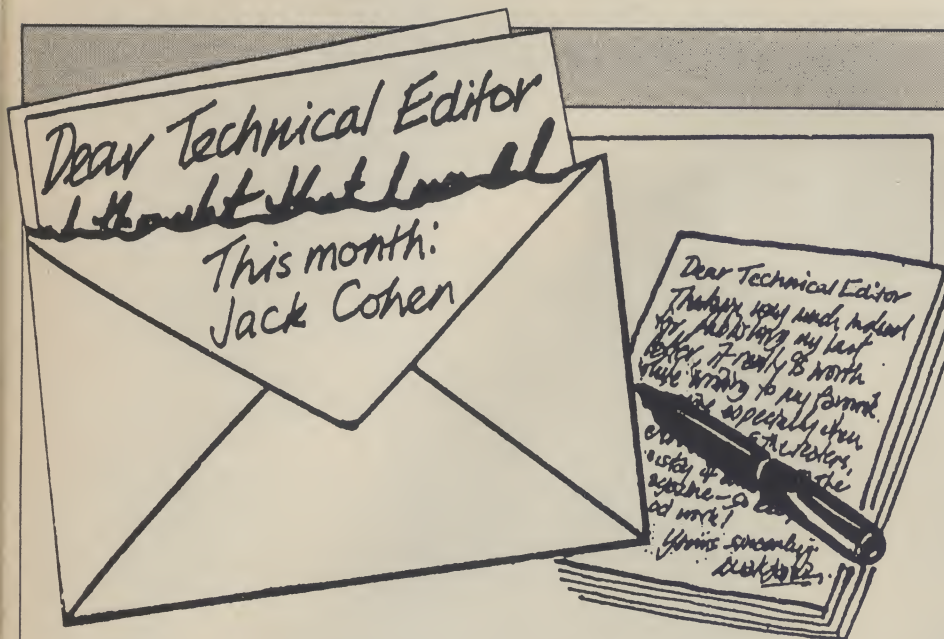 Dear Technical Editor
I thought that I would
This month:
Jack Cohen
Dear Technical Editor
Thank you very much indeed
for publishing my last
letter, it really is worth
while writing to my favourite
especially when
the
so
work!
Yours sincerely